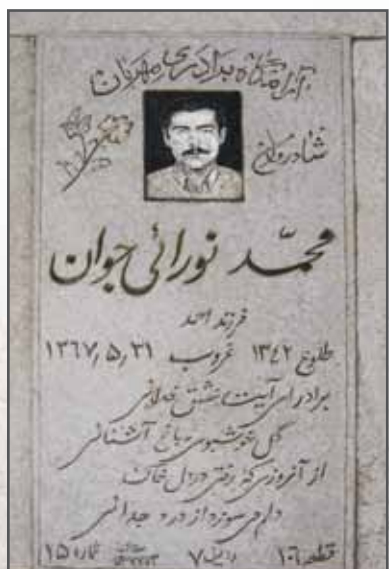 آرامگاه برادری مهربان
شادروان
محمّد نورائی جوان
فرزند احمد
طلوع ۱۳۴۲ غروب ۱۳۶۷٫۵٫۳۱
برادر ای آیت عشق
گل خوشبوی باغ آشنائی
از آنروزی که رفتی در دل خاک
دلم می سوزد از درد جدائی
قطعه ۱۰۶ ردیف ۷ شماره ۱۵